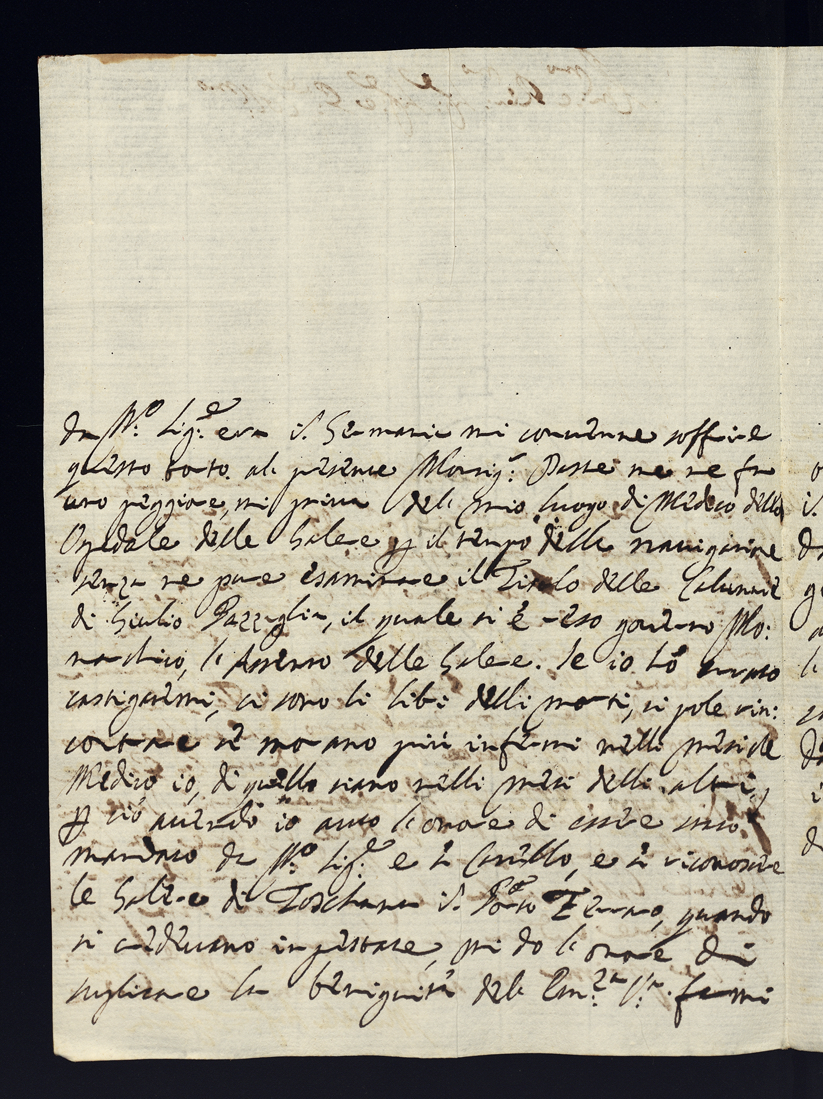 da N.º Sig.re era il Germani mi convenne soffrire
questo torto. al presente Monsig.r Passe me ne fa
uno peggiore, mi priva del mio luogo di Medico dello
Ospedale delle Galere p il tempo delle navigazione
senza ne pure esaminare il Titolo delle Calunnie
di Giulio Pazzaglia, il quale si è reso governo Mo:
narchico, l'Assenso delle Galere. Se io hò errato
castigatemi, ci sono li libri delli morti, si pole rin:
contrare se morano più infermi nelli mesi che
Medico io, di quello siano nelli mesi delli altri,
p ciò avendo io auto l'onore di essere
mandato da N.º Sig.re e à e à riconoscere
le Galere di Toschana il Porto Ferraro, quando
si credevano inpestate, mi do l'onore di
suplicare la benignità del Em.za V.ra farmi